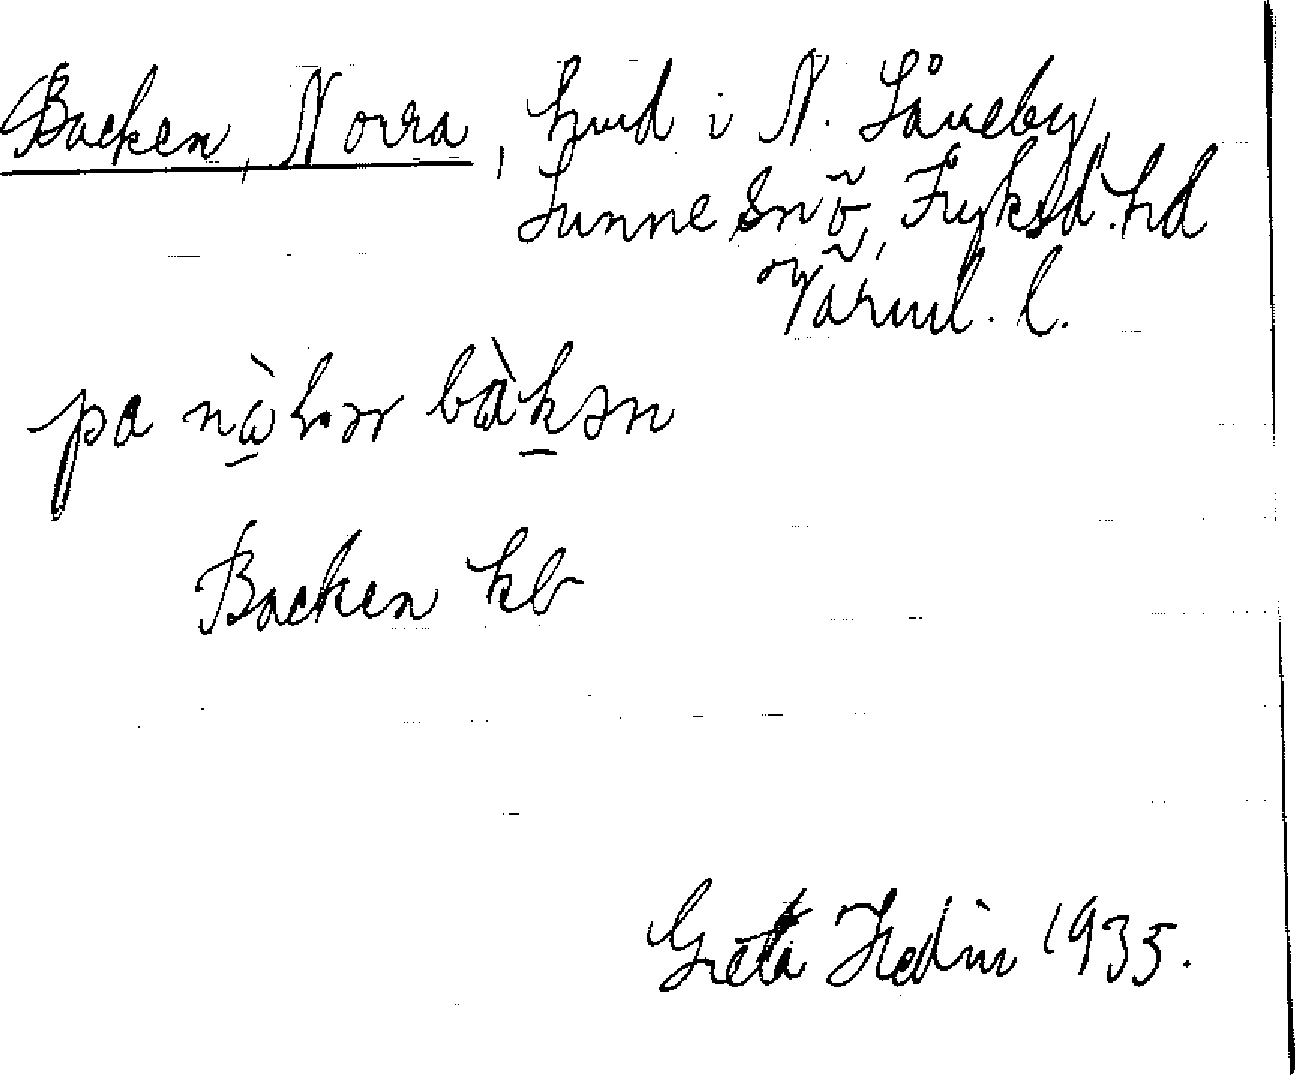 Backen, Norra, hmd i N. Låneby,
Sunne sn ö, Fryksd. hd
Värml. l.
pa nὼhər bàkən
Backen kb
Greta Hedin 1935.